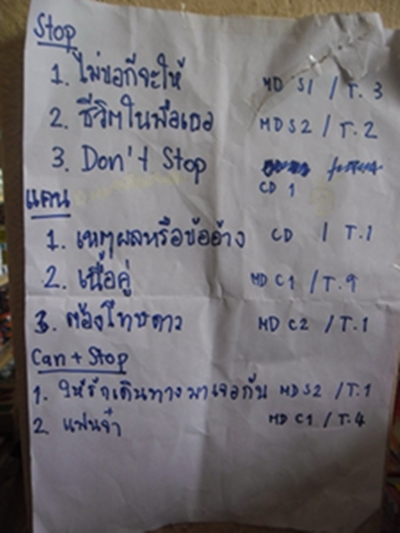 Stop
1. ไม่ขอก็จะให้ MD S1 / T.3
2. ชีวิตในมือเธอ MD S2 / T.2
3. Don't Stop
CD 1
แคน
1. เหตุผลหรือข้ออ้าง CD 1 T.1
2. เนื้อคู่ MD C1 / T.9
3. ต้องโทษดาว MD C2 / T.1
Can + Stop
1. ให้รักเดินทางมาเจอกัน MD S2 / T.1
2. แฟนจ๋า MD C1 / T.4